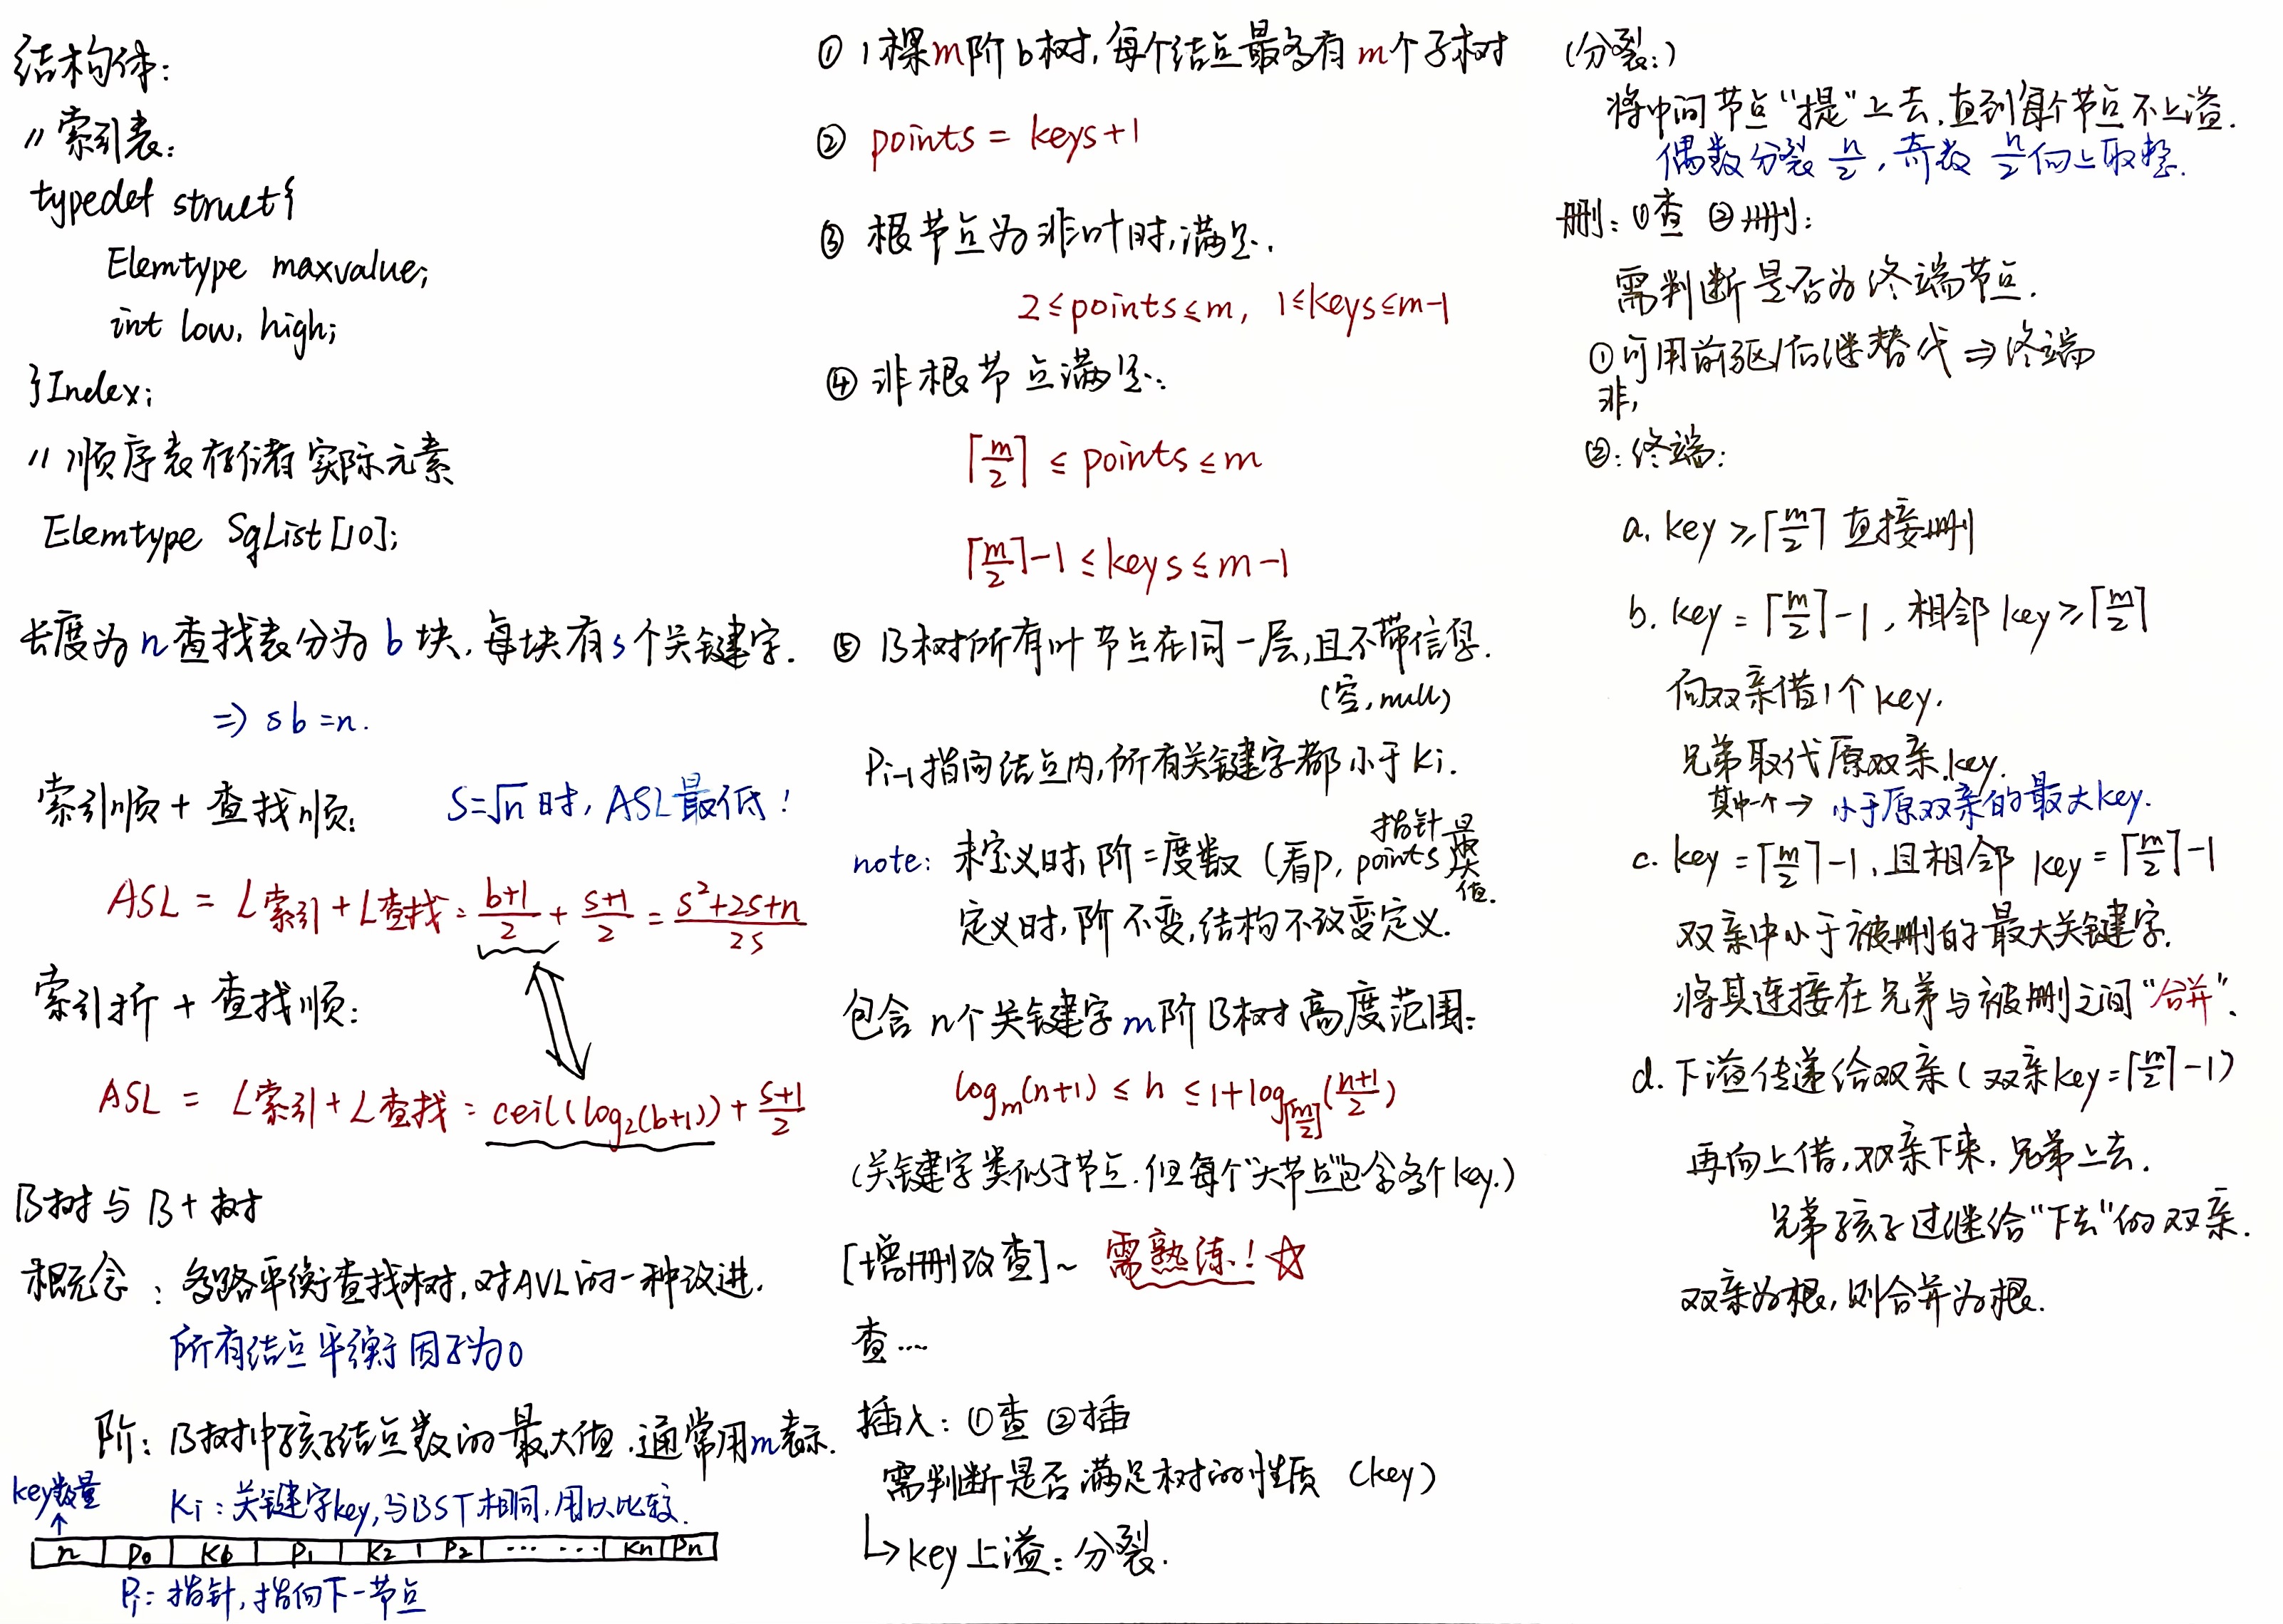 结构体:
// 索引表:
typedef struct{
Elemtype maxvalue;
int low, high;
}Index;
// 顺序表存储着实际元素
Elemtype SqList[10];
长度为n查找表分为b块,每块有s个关键字.
⇒ sb=n.
索引顺 + 查找顺: S=√n时, ASL最低!
ASL = L索引+L查找 = (b+1)/2 + (s+1)/2 = (s²+2s+n)/2s
索引折 + 查找顺:
ASL = L索引+L查找 = ceil(log₂(b+1)) + (s+1)/2
B树与B+树
概念: 多路平衡查找树,对AVL的一种改进.
所有结点平衡因子为0
阶: B树中孩子结点数的最大值.通常用m表示.
key数量
↑
Ki: 关键字key,与BST相同,用以比较.
n P0 K6 P1 K2 P2 ... ... Kn Pn
Pi: 指针,指向下一节点
① 1棵m阶b树,每个结点最多有m个子树
② points = keys+1
③ 根节点为非叶时,满足.
2≤points≤m, 1≤keys≤m-1
④ 非根节点满足:
⌈m/2⌉ ≤ points ≤ m
⌈m/2⌉-1 ≤ keys ≤ m-1
⑤ B树所有叶节点在同一层,且不带信息.
(空,null)
Pi-1指向结点内,所有关键字都小于Ki.
note: 未定义时,阶=度数 (看P, points 指针最大值.
定义时,阶不变,结构不改变定义.
包含n个关键字m阶B树高度范围:
logₘ(n+1) ≤ h ≤ 1+log⌈m/2⌉((n+1)/2)
(关键字类似于节点.但每个"大节点"包含多个key.)
[增删改查]~ 需熟练! ☆
查...
插入: ①查 ②插
需判断是否满足树的性质 (key)
↳key上溢: 分裂.
(分裂:)
将中间节点"提"上去,直到每个节点不上溢.
偶数分裂 n/2, 奇数 n/2向上取整.
删: ①查 ②删:
需判断是否为终端节点.
①可用前驱/后继替代⇒终端
非,
②: 终端:
a. key ≥⌈m/2⌉ 直接删
b. key = ⌈m/2⌉-1, 相邻key≥⌈m/2⌉
向双亲借1个key.
兄弟取代原双亲key.
其中一个→小于原双亲的最大key.
c. key=⌈m/2⌉-1,且相邻 key=⌈m/2⌉-1
双亲中小于被删的最大关键字.
将其连接在兄弟与被删之间"合并".
d. 下溢传递给双亲(双亲key=⌈m/2⌉-1)
再向上借,双亲下来,兄弟上去.
兄弟孩子过继给"下去"的双亲.
双亲为根,则合并为根.